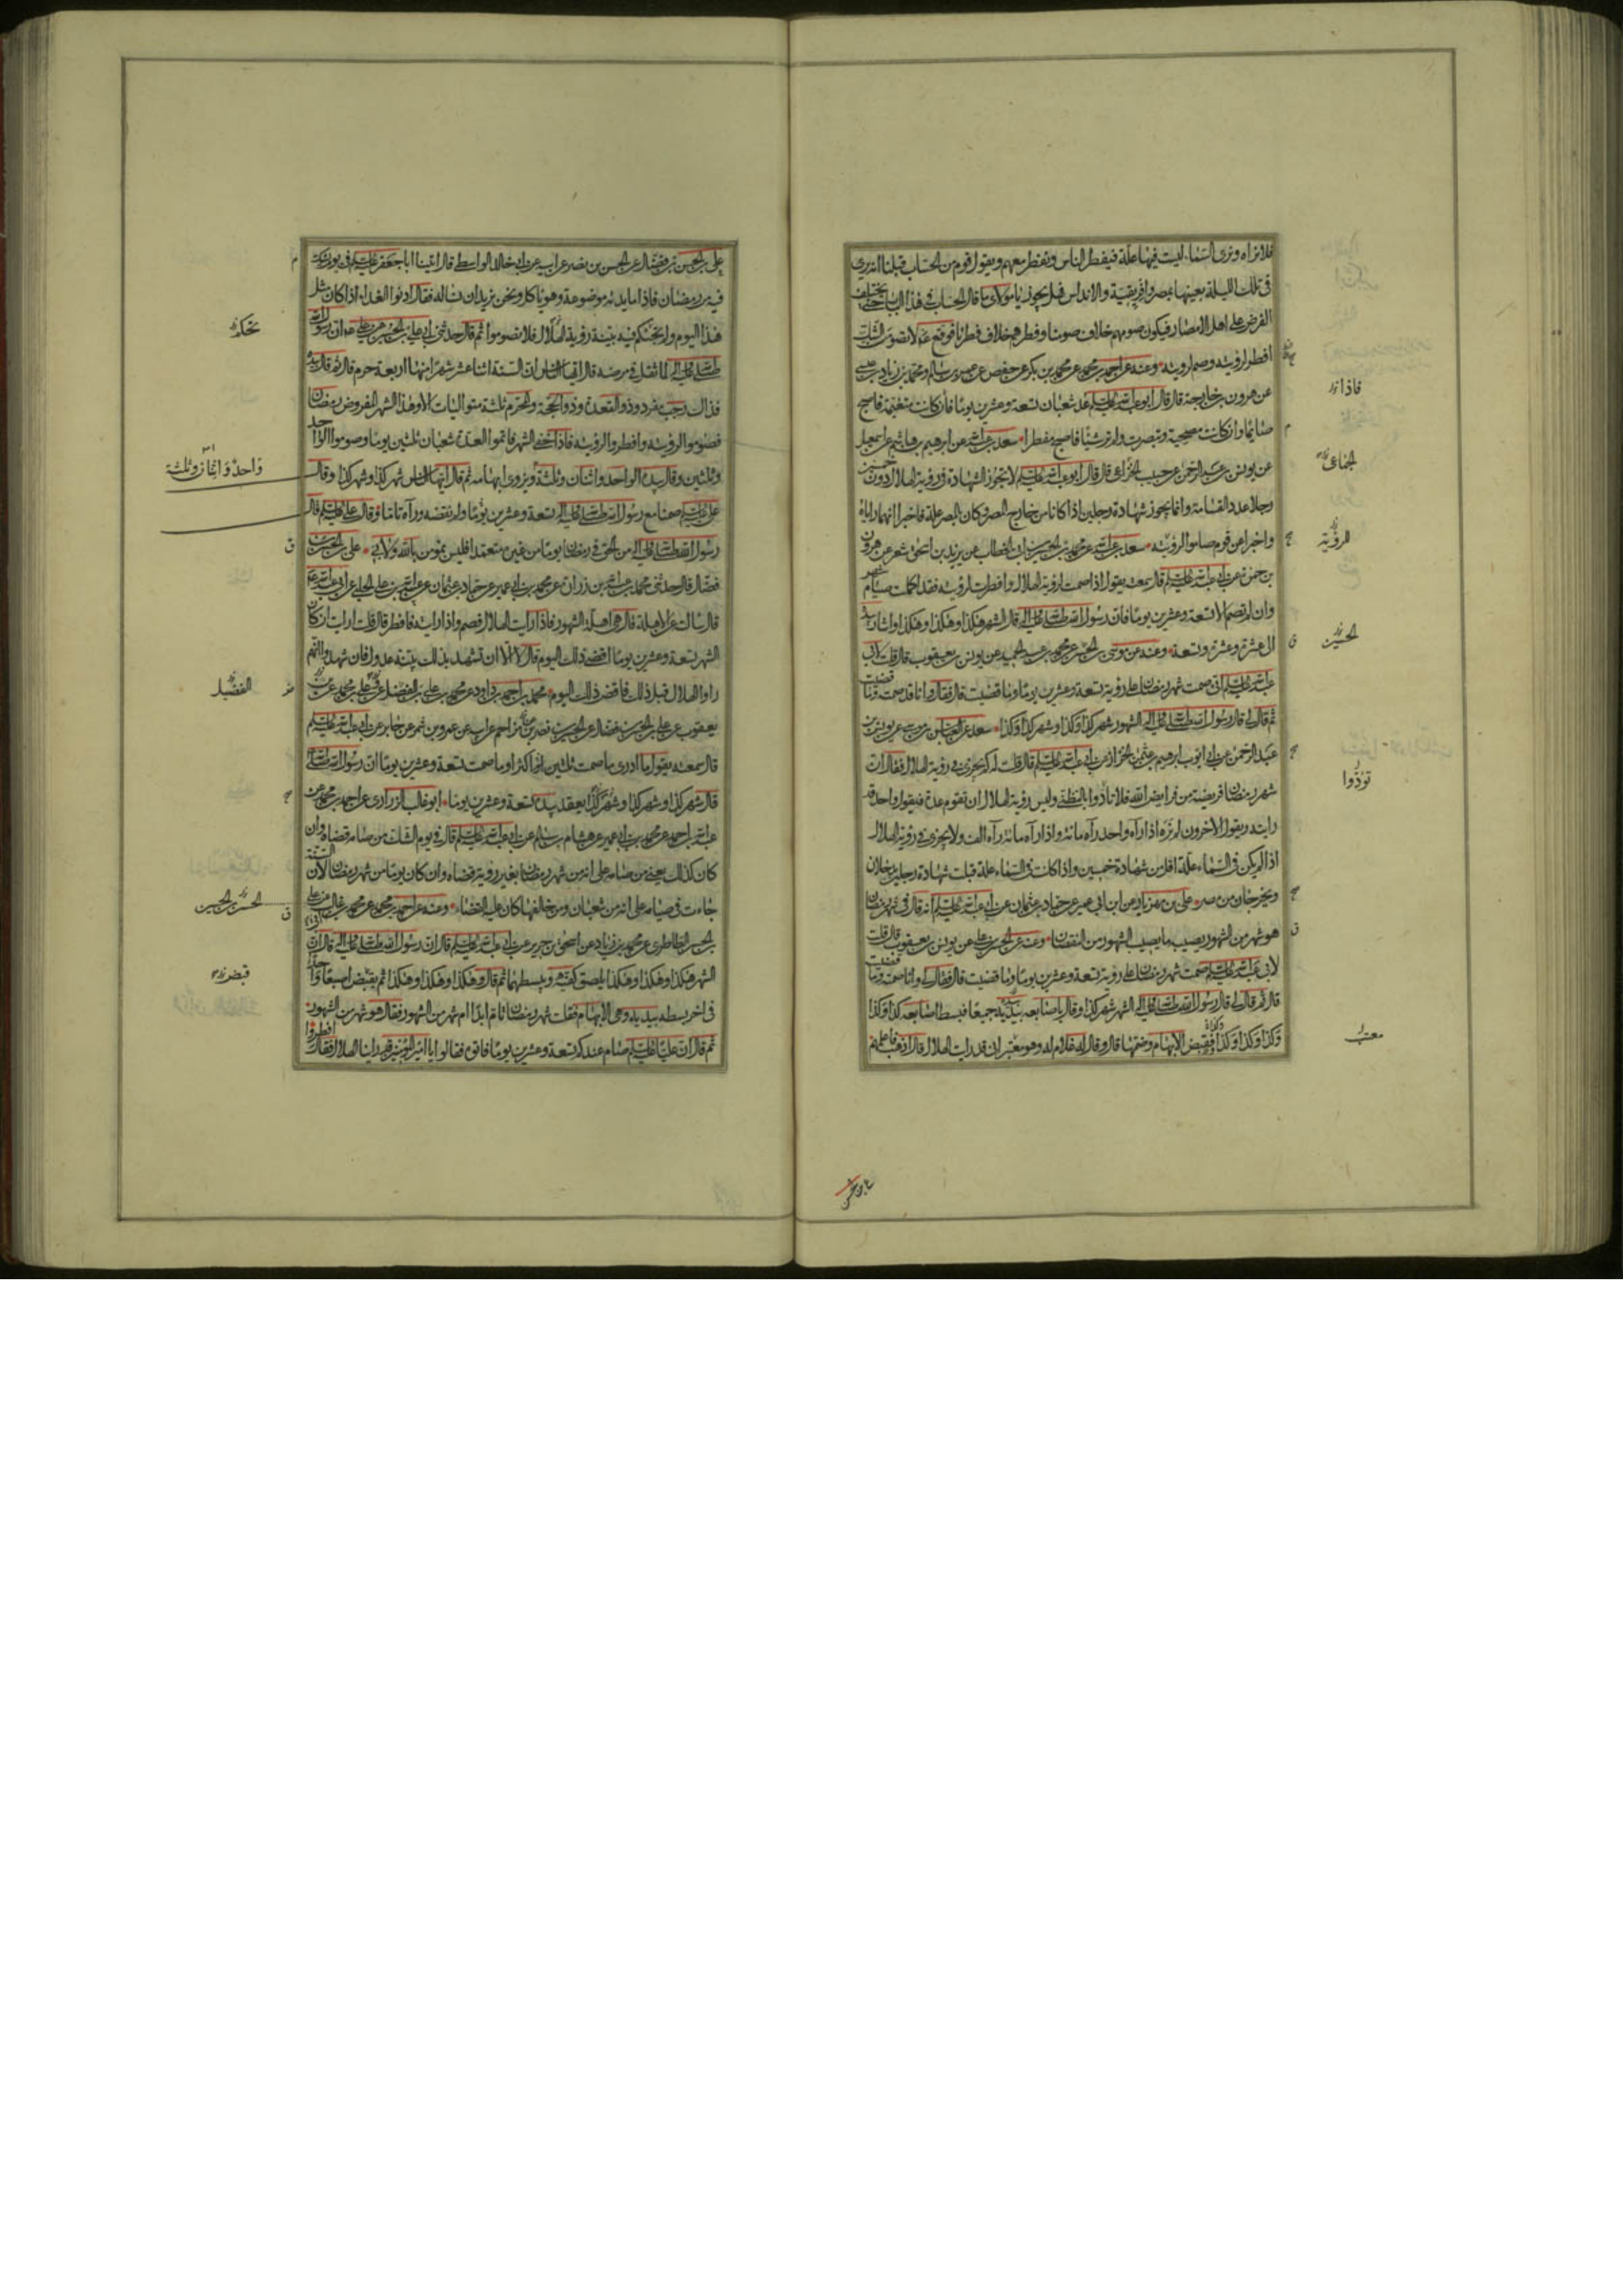 فلا نراه ونرى السماء ليست فيها علة فيفطر الناس ونفطر معهم ويقول قوم من الحساب قبلنا انه يرى
فى تلك الليلة بعينها بمصر وافريقية والاندلس فهل يجوز يا مولاى ما قال الحساب فى هذا الباب حتى يختلف
الفرض على اهل الامصار فيكون صومهم خلاف صومنا وفطرهم خلاف فطرنا فوقع لا تصومن الشك
افطر لرؤيته وصم لرؤيته وعنه عن احمد بن محمد عن محمد بن بكر عن حفص عن عمر بن سالم ومحمد بن زياد بن عيسى
عن هرون بن خارجة قال قال ابو عبد الله عليه السلم عد شعبان تسعة وعشرين يوما فان كانت متغيمة فاصبح
صايما وان كانت مصحية وتبصرت ولم تر شيئا فاصبح مفطرا سعد بن عبد الله عن ابرهيم بن هاشم عن اسمعيل
عن يونس بن عبد الرحمن عن حبيب الخزاعى قال قال ابو عبد الله عليه السلم لا تجوز الشهادة فى رؤية الهلال دون خمسين
رجلا عدد القسامة وانما يجوز شهادة رجلين اذا كانا من خارج المصر وكان بالمصر علة فاخبرا انهما راياه
واخبرا عن قوم صاموا لرؤيته سعد بن عبد الله عن محمد بن الحسين بن ابى الخطاب عن يزيد بن اسحق شعر عن هرون
بن حمزة عن ابى عبد الله عليه السلم قال سمعته يقول اذا صمت لرؤية الهلال وافطرت لرؤيته فقد اكملت صيام شهر
وان لم تصم الا تسعة وعشرين يوما فان رسول الله صلى الله عليه واله قال الشهر هكذا وهكذا وهكذا واشار بيده
الى عشرة وعشرة وتسعة وعنه عن موسى بن الحسن عن محمد بن عبد الحميد عن يونس بن يعقوب قال قلت لابى
عبد الله عليه السلم انى صمت شهر رمضان على رؤية تسعة وعشرين يوما وما قضيت قال فقال وانا قد صمته وما قضيت
ثم قال لى قال رسول الله صلى الله عليه واله الشهور شهر كذا وكذا وشهر كذا وكذا سعد عن العباس بن موسى عن يونس بن
عبد الرحمن عن ابى ايوب ابرهيم بن عثمن الخزاز عن ابى عبد الله عليه السلم قال قلت له كم يجزى فى رؤية الهلال فقال ان
شهر رمضان فريضة من فرايض الله فلا تادوا بالتظنى وليس رؤية الهلال ان تقوم عدة فيقول واحد قد
رايته ويقول الاخرون لم نره اذا رآه واحد رآه مائة واذا رآه مائة رآه الف ولا يجزى فى رؤية الهلال
اذا لم يكن فى السماء علة اقل من شهادة خمسين واذا كانت فى السماء علة قبلت شهادة رجلين يدخلان
ويخرجان من مصر على بن مهزيار عن ابن ابى عمير عن حماد بن عثمان عن ابى عبد الله عليه السلم انه قال فى شهر رمضان
هو شهر من الشهور يصيبه ما يصيب الشهور من النقصان وعنه عن الحسن بن على عن يونس بن يعقوب قال قلت
لابى عبد الله عليه السلم صمت شهر رمضان على رؤية تسعة وعشرين يوما وما قضيت قال فقال لى وانا صمته وما قضيت
قال ثم قال لى قال رسول الله صلى الله عليه واله الشهر شهر كذا وقال باصابعه بيديه جميعا فبسط اصابعه كذا وكذا
وكذا وكذا وكذا فقبض الابهام وضمها قال وقال له غلام له وهو معتب انى قد رايت الهلال قال اذهب فاعلمهم
فاذا
الجماعى
للرؤية
الحسين
تؤدوا
معتب
على بن الحسن
على بن الحسن بن فضال عن الحسن بن نصر عن ابيه عن ابى خالد الواسطى قال اتينا ابا جعفر عليه السلم فى يوم يشك
فيه من رمضان فاذا مايدته موضوعة وهو ياكل ونحن نريدان نساله فقال ادنوا الغداء اذا كان مثل
هذا اليوم ولم تجئكم فيه بينة رؤية الهلال فلا تصوموا ثم قال حدثنى ابى على بن الحسين عن على ان رسول الله
صلى الله عليه واله لما ثقل فى مرضه قال ايها الناس ان السنة اثنا عشر شهرا منها اربعة حرم قال ثم قال بيده
فذاك رجب مفرد وذو القعدة وذو الحجة والمحرم ثلثة متواليات الا وهذا الشهر المفروض رمضان
فصوموا لرؤيته وافطروا لرؤيته فاذا خفى الشهر فاتموا العدة شعبان ثلثين يوما وصوموا الواحد
وثلثين وقال بيده الواحد واثنان وثلثة ويزوى ابهامه ثم قال ايها الناس شهر كذا وشهر كذا وقال
على عليه السلم صمنا مع رسول الله صلى الله عليه واله تسعة وعشرين يوما ولم نقضه ورآه تاما وقال على عليه السلم قال
رسول الله صلى الله عليه واله من الحق فى رمضان يوما من غيره متعمدا فليس بمؤمن بالله ولا بى على بن الحسن بن
فضال قال حدثنى محمد بن عبد الله بن زرارة عن محمد بن ابى عمير عن حماد بن عثمان عن عبيد الله بن على الحلبى عن ابى عبد الله
قال سالته عن الاهلة قال هى اهلة الشهور فاذا رايت الهلال فصم واذا رايته فافطر قال قلت ارايت ان كان
الشهر تسعة وعشرين يوما اقضى ذلك اليوم قال لا الا ان تشهد بذلك بينة عدول فان شهدوا انهم
راوا الهلال قبل ذلك فاقض ذلك اليوم محمد بن احمد بن داود عن محمد بن على بن الفضل عن على بن محمد بن
يعقوب عن على بن الحسن بن فضال عن الحسين بن نصر بن مزاحم عن ابيه عن عمرو بن شمر عن جابر عن ابى عبد الله عليه السلم
قال سمعته يقول ما ادرى ما صمت ثلثين او اكثر او ما صمت تسعة وعشرين يوما ان رسول الله صلى الله
قال شهر كذا وشهر كذا وشهر كذا يعقد بيده تسعة وعشرين يوما ابو غالب الزرارى عن احمد بن محمد عن
عبد الله بن احمد عن محمد بن ابى عمير عن هشام بن سالم عن ابى عبد الله عليه السلم قال فى يوم الشك من صامه قضاه وان
كان كذلك يعنى من صامه على انه من شهر رمضان بغير رؤية قضاه وان كان يوما من شهر رمضان لان السنة
جاءت فى صيامه على انه من شعبان ومن خالفها كان عليه القضاء وعنه عن احمد بن محمد عن محمد بن غالب عن على
بن الحسن الطاطرى عن محمد بن زياد عن اسحق بن جرير عن ابى عبد الله عليه السلم قال ان رسول الله صلى الله عليه واله قال ان
الشهر هكذا وهكذا وهكذا يلصق كفيه ويبسطهما ثم قال وهكذا وهكذا وهكذا ثم يقبض اصبعا واحدا
فى اخر بسطه بيديه وهى الابهام فقلت شهر رمضان تام ابدا ام شهر من الشهور فقال هو شهر من الشهور
ثم قال ان عليا عليه السلم صام عندكم تسعة وعشرين يوما فاتوه فقالوا يا امير المؤمنين قد راينا الهلال فقال افطروا
تجئكم
واحد واثنان وثلثة
الفضيل
الحسن بن الحسين
قبض